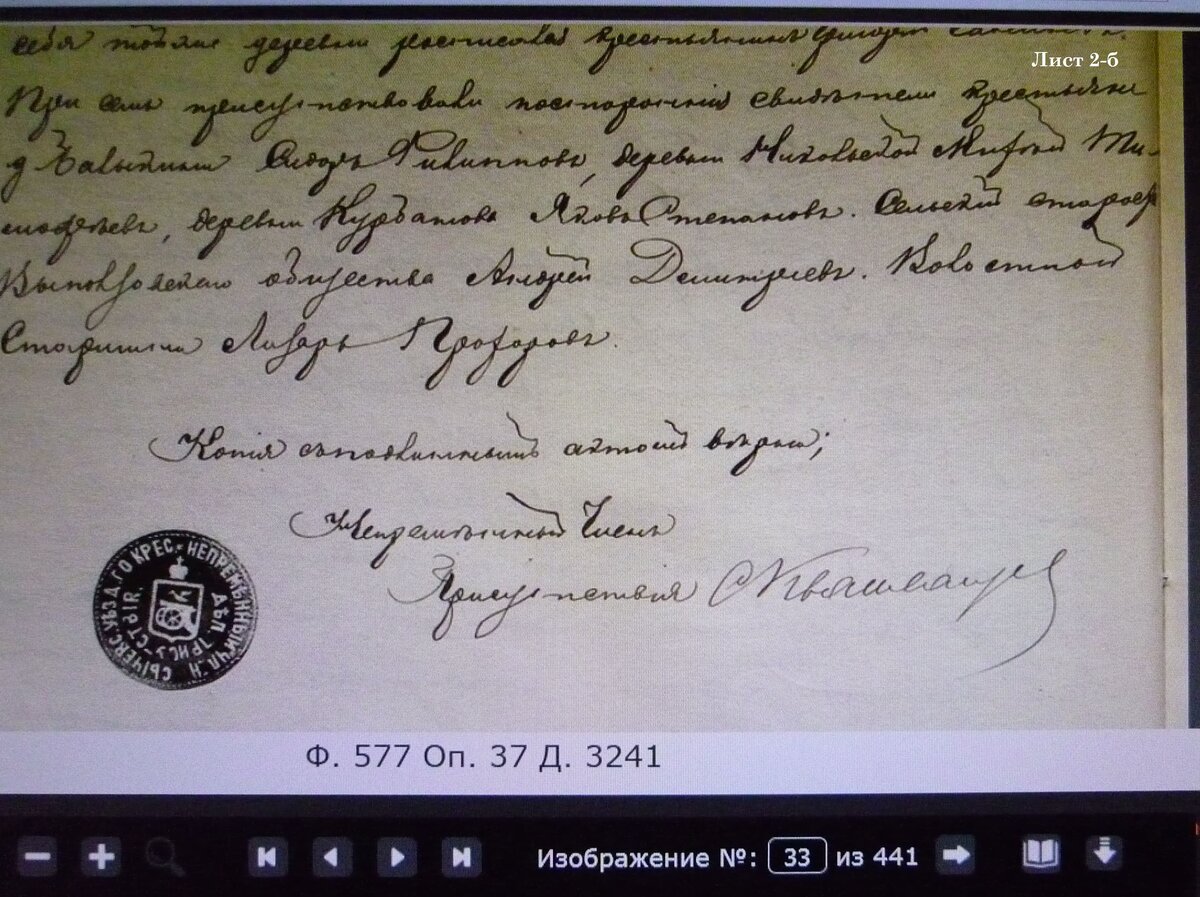 Лист 2-б
себя той же деревни крестьянин
При семъ присутствовали посторонніе свидѣтели крестьяне
д. Сидоръ Филипповъ, деревни Никольской Ти-
мофеевъ, деревни Курбатова Яковъ Степановъ. Сельскій староста
общества Андрей Дмитріевъ. Волостной
Старшина Лазарь Прохоровъ.
Копія съ подлиннымъ актомъ вѣрна;
Непремѣнный Членъ
Присутствія
СЫЧЕВС. УѢЗД. ГО КРЕС. НЕПРЕМѢННЫЙ ЧЛ. Н.
ДѢЛ. ПРИСУ-СТВІЯ
Ф. 577 Оп. 37 Д. 3241
Изображение №: 33 из 441